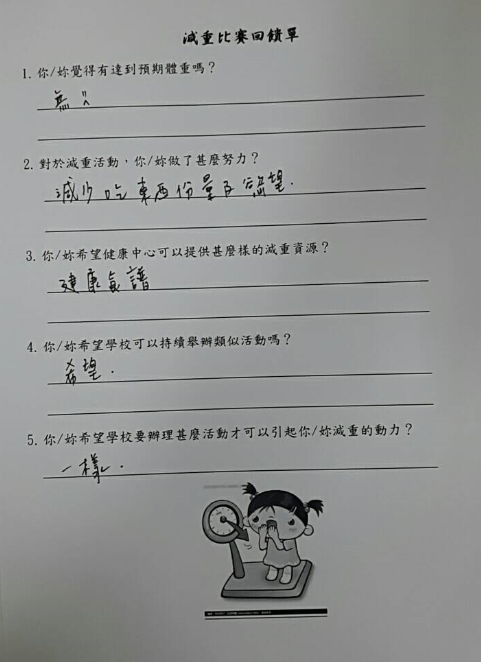 減重比賽回饋單
1. 你/妳覺得有達到預期體重嗎？
無
2. 對於減重活動，你/妳做了甚麼努力？
減少吃東西份量及慾望.
3. 你/妳希望健康中心可以提供甚麼樣的減重資源？
建康食譜
4. 你/妳希望學校可以持續舉辦類似活動嗎？
希望.
5. 你/妳希望學校要辦理甚麼活動才可以引起你/妳減重的動力？
一樣.